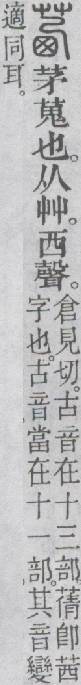 茜茅蒐也。从艸。西聲。
倉見切。古音在十三部。蒨卽茜
字也。古音當在十一部。其音變
適同耳。